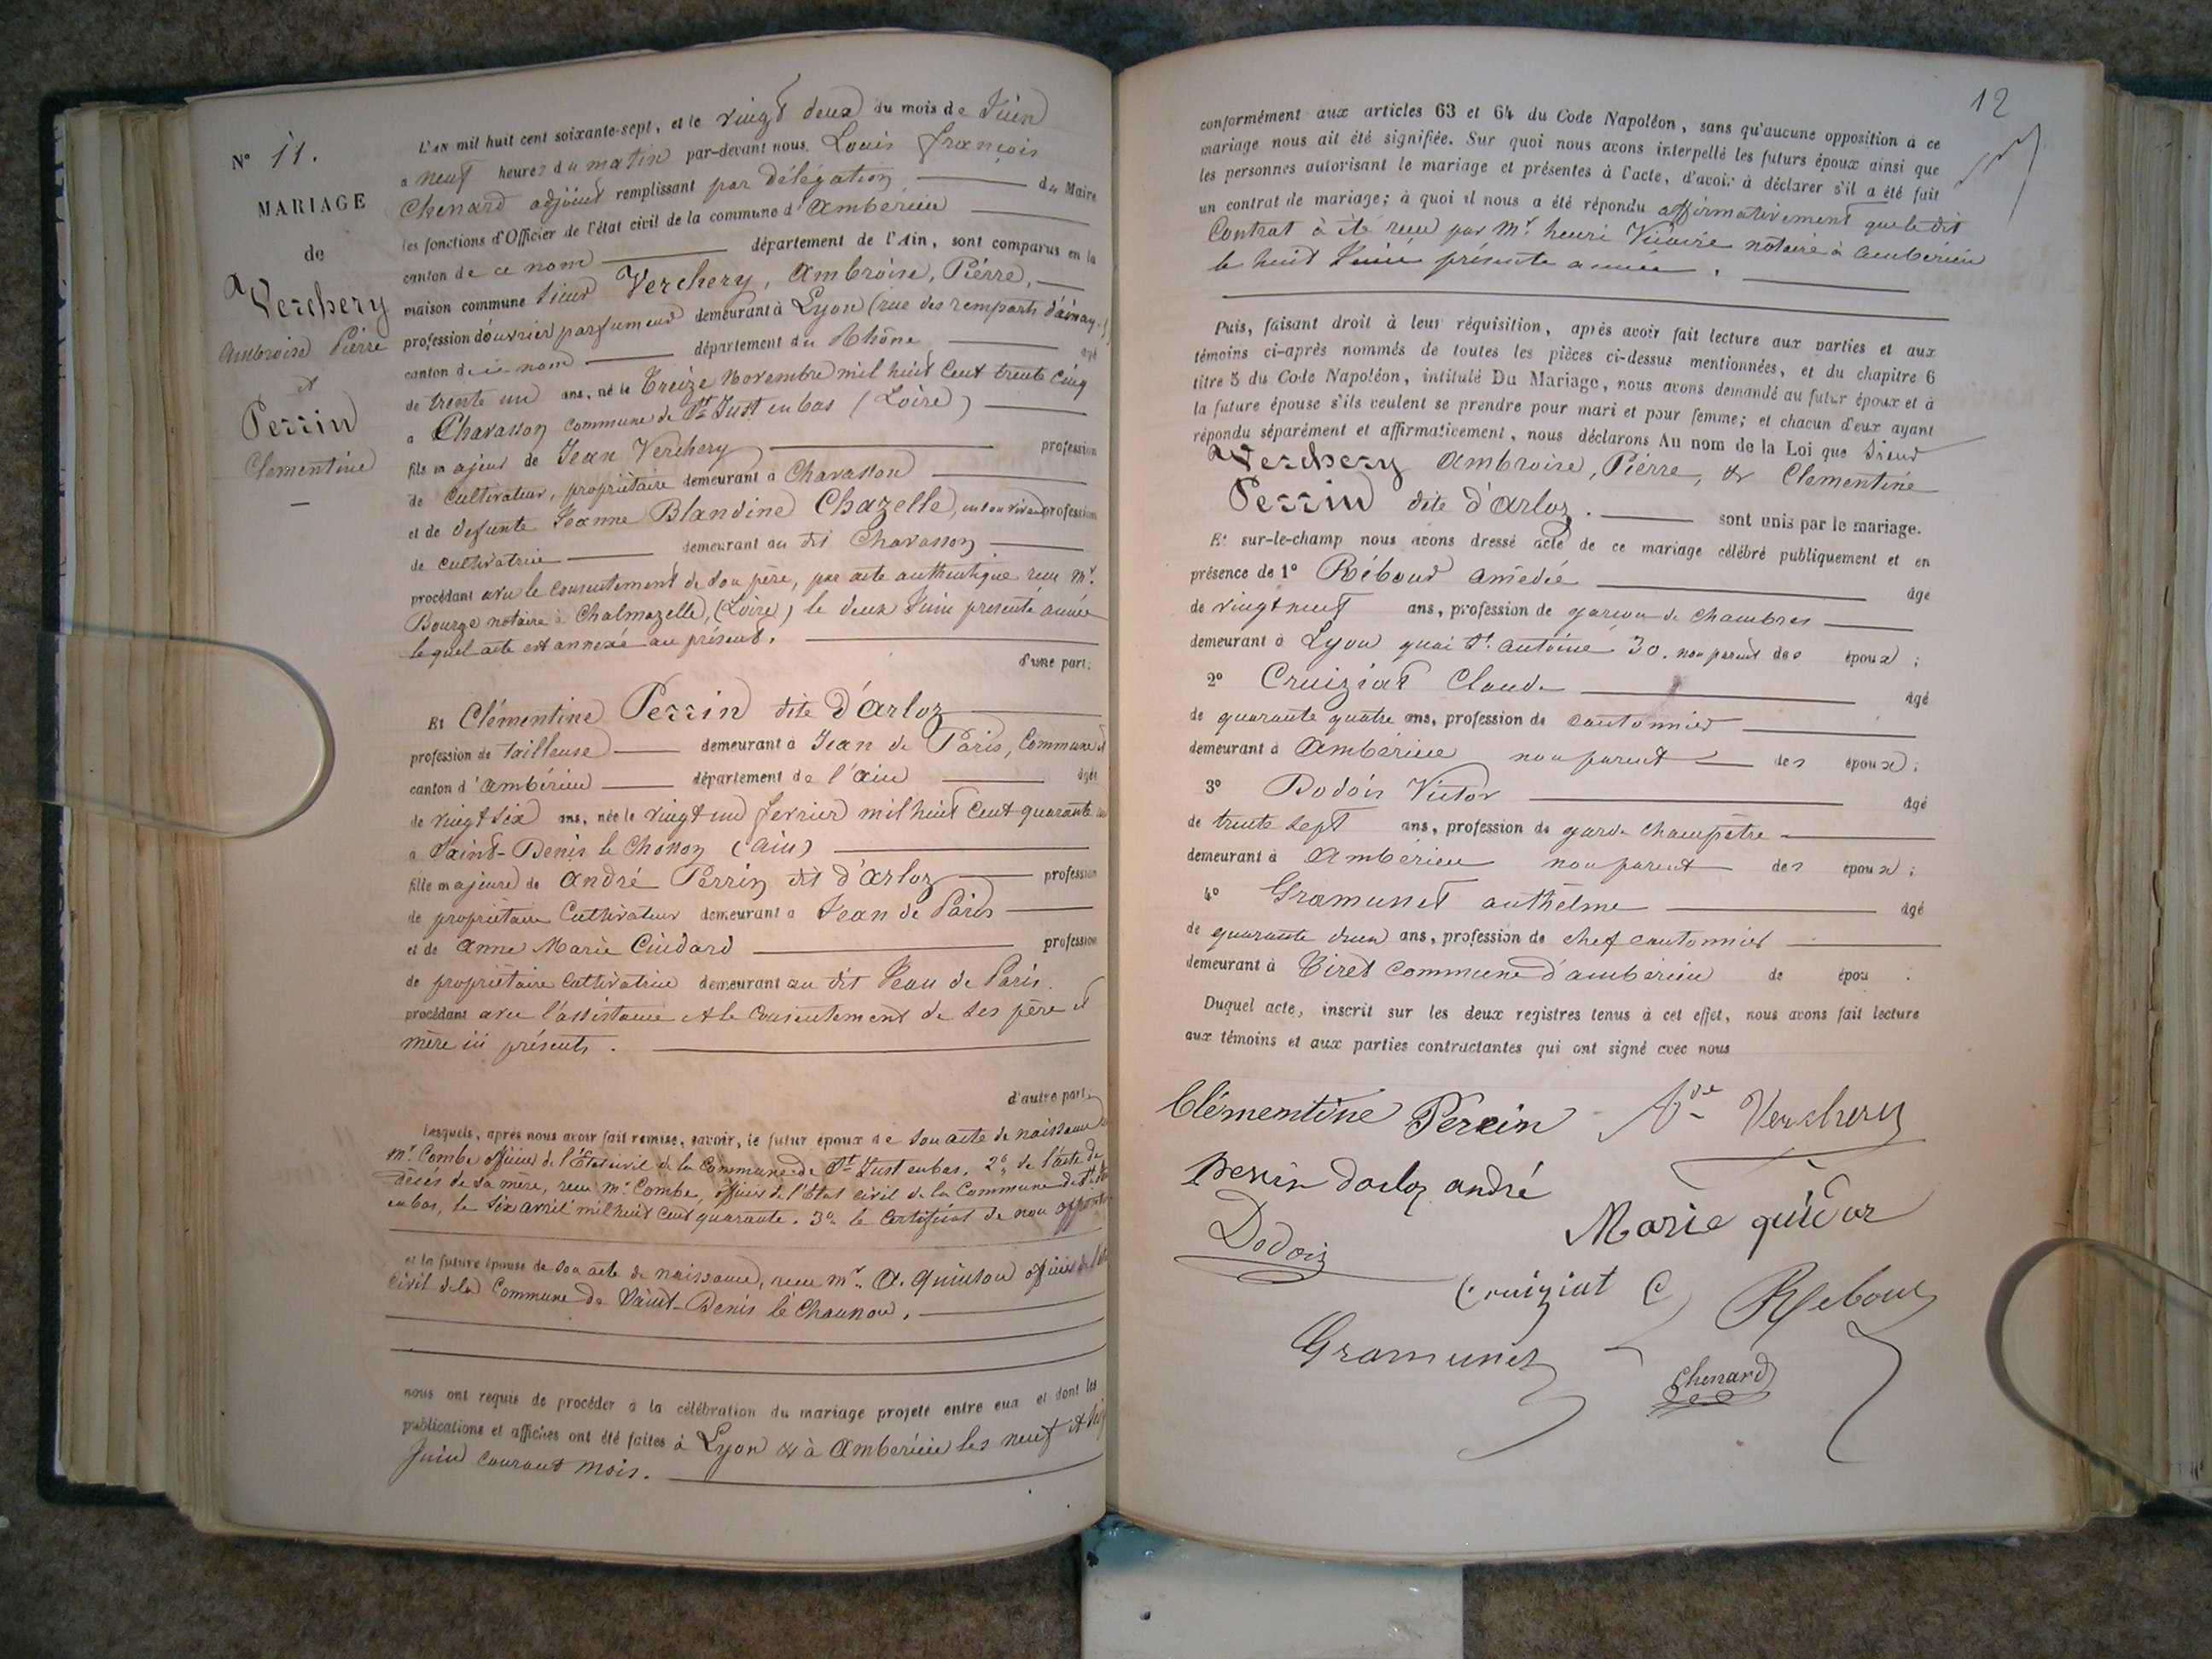 N° 11.
MARIAGE
de
Verchery
Ambroise Pierre
et
Perrin
Clementine
L'AN mil huit cent soixante-sept, et le vingt deux du mois de Juin
a neuf heures du matin par-devant nous, Louis françois
Chenard adjoint remplissant par délégation du Maire
les fonctions d'Officier de l'état civil de la commune d'Ambérieu
canton de ce nom département de l'Ain, sont comparus en la
maison commune Sieur Verchery, Ambroise, Pierre,
profession d'ouvrier parfumeur demeurant à Lyon (rue des remparts d'ainay
canton de ce nom département du Rhône agé
de trente un ans, né le treize Novembre mil huit Cent trente Cinq
a Chavasson commune de St Just en bas (Loire)
fils majeur de Jean Verchery profession
de Cultivateur, propriétaire demeurant a Chavasson
et de defunte Jeanne Blandine Chazelle, en son vivant profession
de cultivatrice demeurant au dit Chavasson
procédant avec le consentement de son père, par acte authentique reçu Mr.
Bourge notaire à Chalmazelle, (Loire) le deux Juin presente année
lequel acte est annexé au présent.
d'une part;
Et Clémentine Perrin dite d'Arloz
profession de tailleuse demeurant à Jean de Paris, Commune et
canton d'Ambérieu département de l'Ain agée
de vingt six ans, née le vingt un fevrier mil huit Cent quarante un
a Saint-Denis le Chosson (Ain)
fille majeure de André Perrin dit d'Arloz profession
de propriétaire Cultivateur demeurant a Jean de Paris
et de Anne Marie Cuidard profession
de propriétaire Cultivatrice demeurant au dit Jean de Paris.
procédant avec l'assistance et le Consentement de ses père et
mère ici présents.
d'autre part;
Lesquels, après nous avoir fait remise, savoir, le futur époux de son acte de naissance
Mr. Combe officier de l'État civil de la Commune de St Just en bas, 2° de l'acte de
Décés de sa mère, reçu Mr Combe, officier de l'État civil de la Commune de St
en bas, le Six avril mil huit Cent quarante. 3° le Certificat de non
et la future épouse de son acte de naissance, reçu mr. A. Quinson officier de
civil de la Commune de Saint-Denis le Chaunou.
nous ont requis de procéder à la célébration du mariage projeté entre eux et dont les
publications et affiches ont été faites à Lyon & à Ambérieu les neuf et
Juin courant mois.
12
conformément aux articles 63 et 64 du Code Napoléon, sans qu'aucune opposition à ce
mariage nous ait été signifiée. Sur quoi nous avons interpellé les futurs époux ainsi que
les personnes autorisant le mariage et présentes à l'acte, d'avoir à déclarer s'il a été fait
un contrat de mariage; à quoi il nous a été répondu affirmativement que le dit
Contrat à été reçu par Mr. henri Vicaire notaire à Ambérieu
le huit Juin présente année.
Puis, faisant droit à leur réquisition, après avoir fait lecture aux parties et aux
témoins ci-après nommés de toutes les pièces ci-dessus mentionnées, et du chapitre 6
titre 5 du Code Napoléon, intitulé Du Mariage, nous avons demandé au futur époux et à
la future épouse s'ils veulent se prendre pour mari et pour femme; et chacun d'eux ayant
répondu séparément et affirmativement, nous déclarons Au nom de la Loi que Sieur
Verchery Ambroise, Pierre, & Clementine
Perrin dite d'Arloz. sont unis par le mariage.
Et sur-le-champ nous avons dressé acte de ce mariage célébré publiquement et en
présence de 1° Rébour Amédée âgé
de vingt neuf ans, profession de garçon de chambres
demeurant à Lyon quai St. Antoine 30. non parent des époux;
2° Cruiziat Claude agé
de quarante quatre ans, profession de cantonnier
demeurant à Ambérieu non parent des époux;
3° Dodois Victor agé
de trente sept ans, profession de garde champêtre
demeurant à Ambérieu non parent des époux;
4° Gramunet anthelme agé
de quarante deux ans, profession de chef cantonnier
demeurant à Tiret Commune d'ambérieu de épou .
Duquel acte, inscrit sur les deux registres tenus à cet effet, nous avons fait lecture
aux témoins et aux parties contractantes qui ont signé avec nous
Clémentine Perrin Ase Verchery
Perrin darloz andré
Marie quidor
Dodois
Cruiziat C Rebour
Gramunet
Chenard